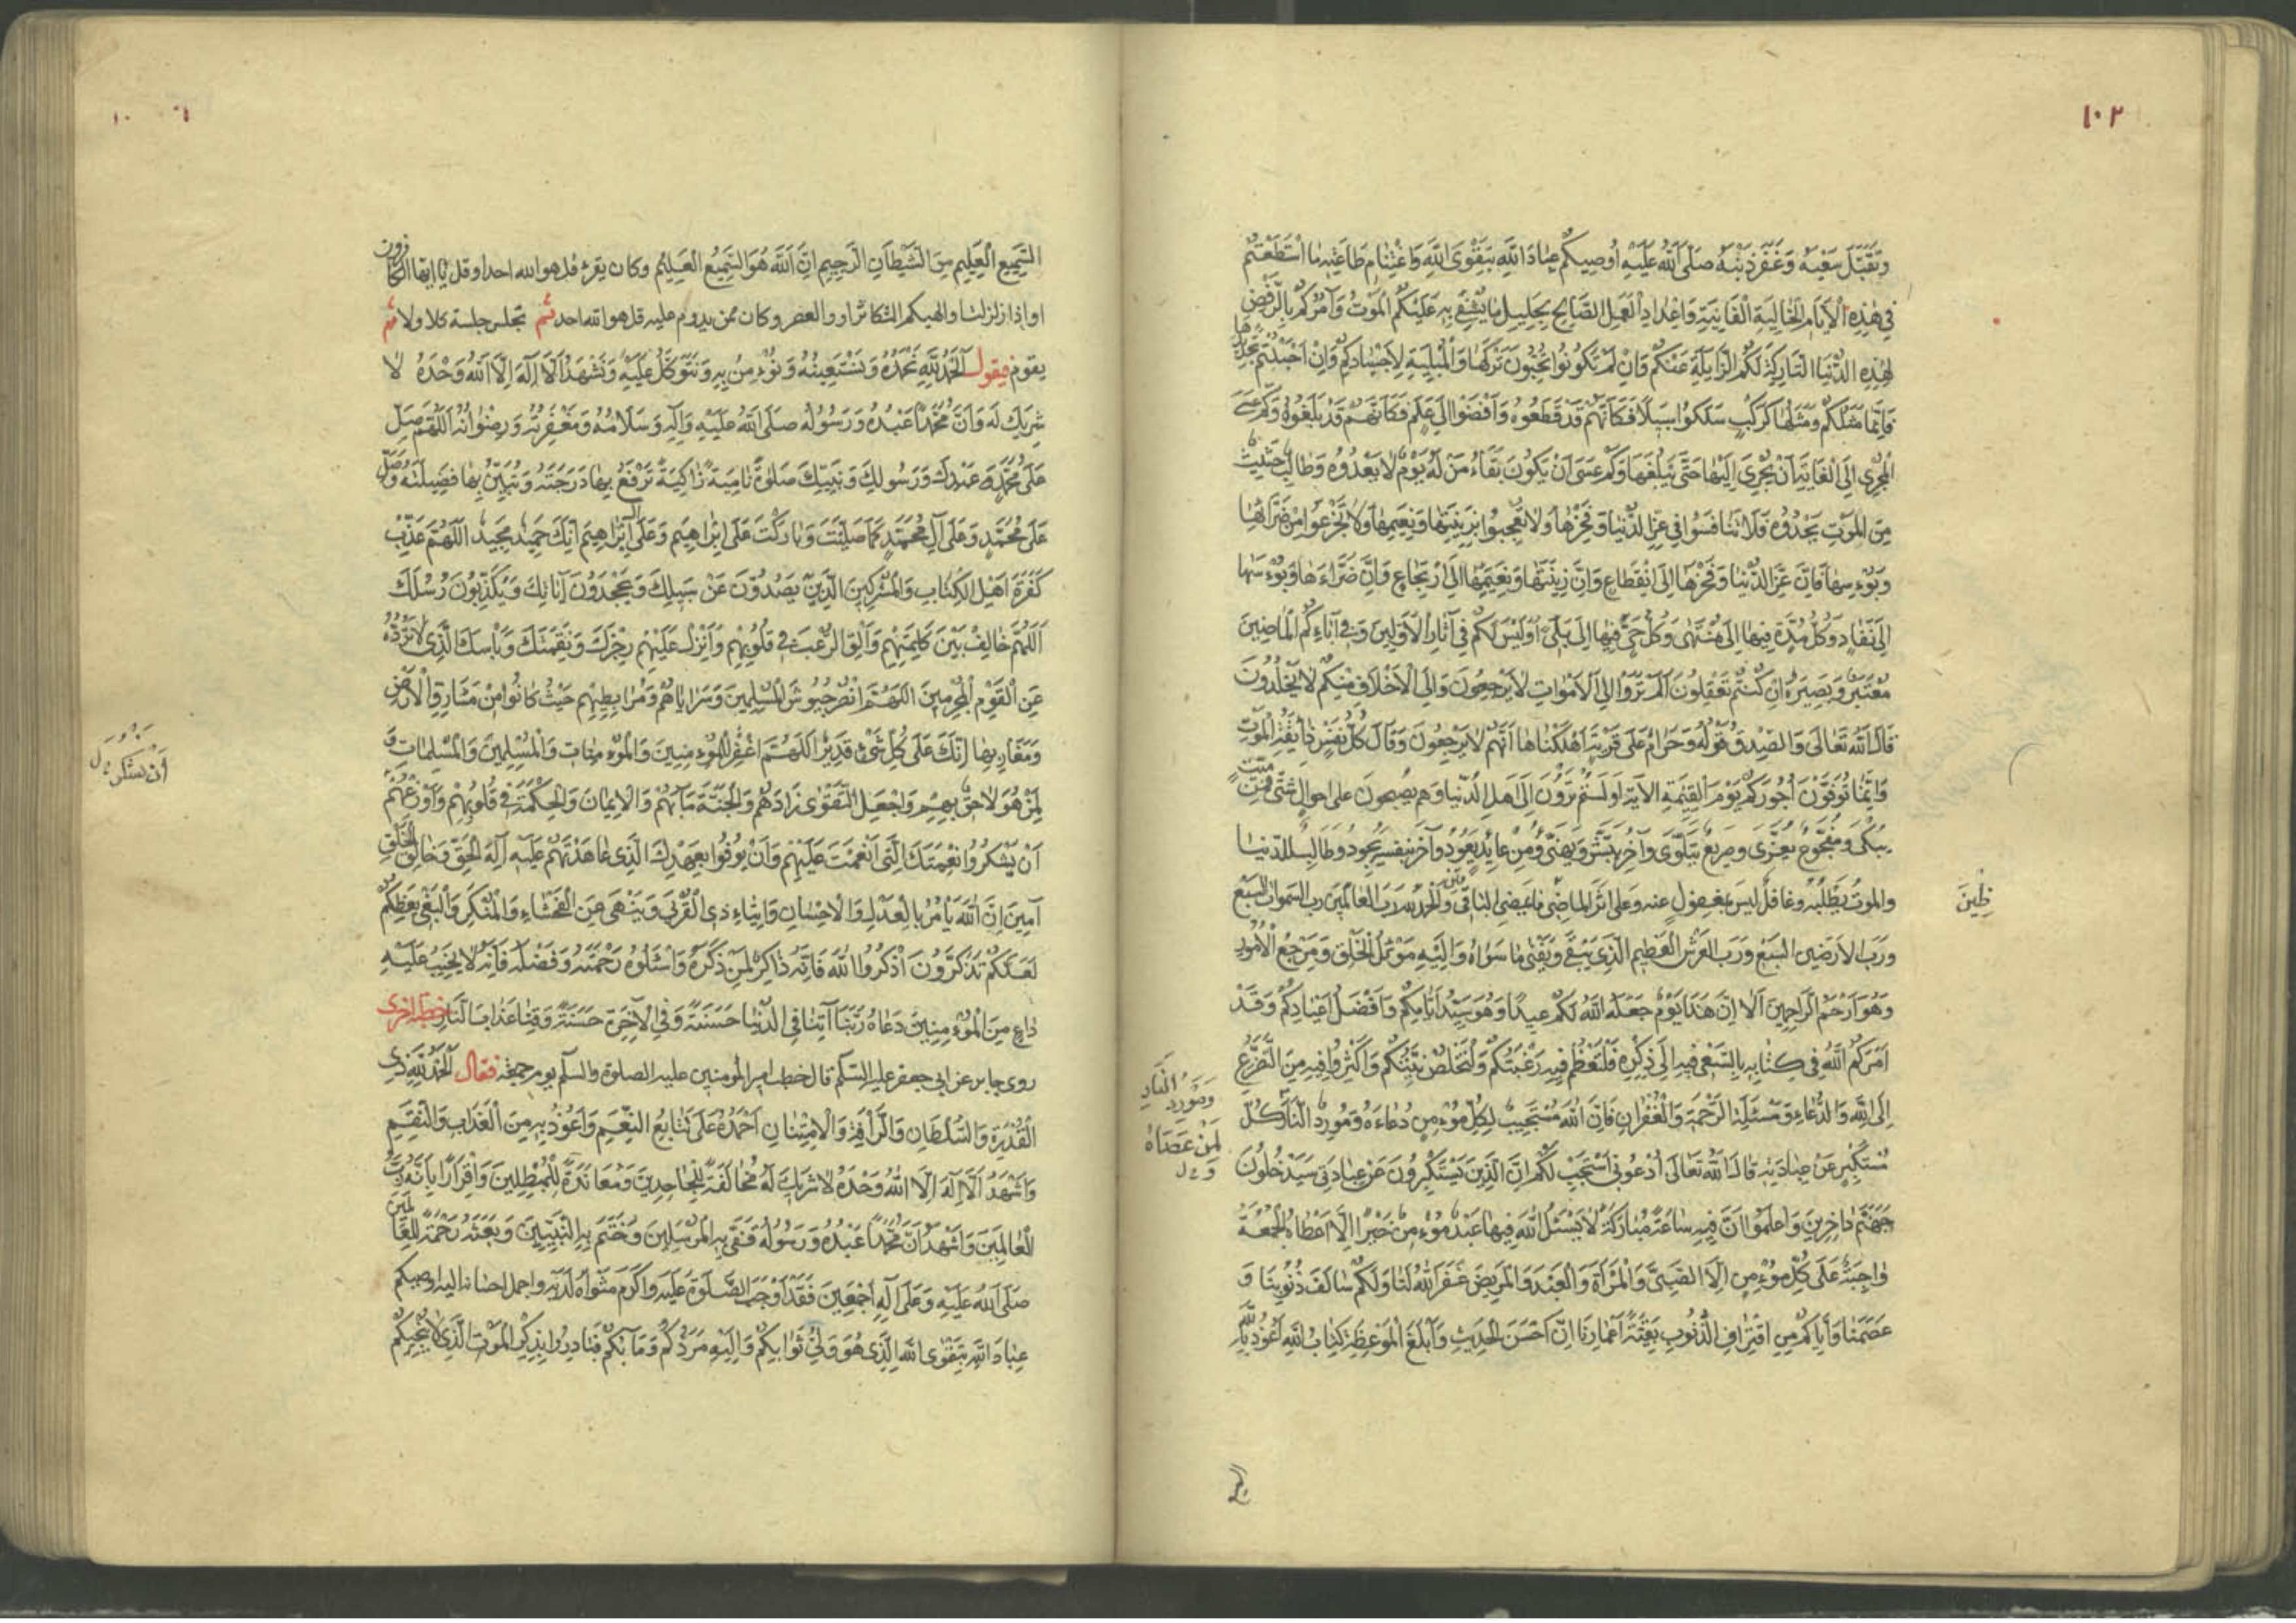 ١٠٢
وَتَقَبَّلَ سَعْيَهُ وَغَفَرَ ذَنْبَهُ صَلَّى اللَّهُ عَلَيْهِ أُوصِيكُمْ عِبَادَ اللَّهِ بِتَقْوَى اللَّهِ وَاغْتِنَامِ طَاعَتِهِ مَا اسْتَطَعْتُمْ
فِي هَذِهِ الْأَيَّامِ الْخَالِيَةِ الْفَانِيَةِ وَإِعْدَادِ الْعَمَلِ الصَّالِحِ بِجَلِيلِ مَا يُشْفِي بِهِ عَلَيْكُمُ الْمَوْتُ وَآمُرُكُمْ بِالرَّفْضِ
لِهَذِهِ الدُّنْيَا التَّارِكَةِ لَكُمُ الزَّايِلَةِ عَنْكُمْ وَإِنْ لَمْ تَكُونُوا تُحِبُّونَ تَرْكَهَا وَالْمُبْلِيَةِ لِأَجْسَادِكُمْ وَإِنْ أَحْبَبْتُمْ تَجْدِيدَهَا
فَإِنَّمَا مَثَلُكُمْ وَمَثَلُهَا كَرَكْبٍ سَلَكُوا سَبِيلًا فَكَأَنَّهُمْ قَدْ قَطَعُوهُ وَأَفْضَوْا إِلَى عَلَمٍ فَكَأَنَّهُمْ قَدْ بَلَغُوهُ وَكَمْ عَسَى
الْمُجْرِي إِلَى الْغَايَةِ أَنْ يَجْرِيَ إِلَيْهَا حَتَّى يَبْلُغَهَا وَكَمْ عَسَى أَنْ يَكُونَ بَقَاءُ مَنْ لَهُ يَوْمٌ لَا يَعْدُوهُ وَطَالِبٌ حَثِيثٌ
مِنَ الْمَوْتِ يَحْدُوهُ فَلَا تَنَافَسُوا فِي عِزِّ الدُّنْيَا وَفَخْرِهَا وَلَا تَعْجَبُوا بِزِينَتِهَا وَنَعِيمِهَا وَلَا تَجْزَعُوا مِنْ ضَرَّائِهَا
وَبُؤْسِهَا فَإِنَّ عِزَّ الدُّنْيَا وَفَخْرَهَا إِلَى انْقِطَاعٍ وَإِنَّ زِينَتَهَا وَنَعِيمَهَا إِلَى ارْتِجَاعٍ وَإِنَّ ضَرَّاءَهَا وَبُؤْسَهَا
إِلَى نَفَادٍ وَكُلُّ مُدَّةٍ فِيهَا إِلَى مُنْتَهَى وَكُلُّ حَيٍّ فِيهَا إِلَى بِلًى أَوَلَيْسَ لَكُمْ فِي آثَارِ الْأَوَّلِينَ وَفِي آبَاءِكُمُ الْمَاضِينَ
مُعْتَبَرٌ وَبَصِيرَةٌ إِنْ كُنْتُمْ تَعْقِلُونَ أَلَمْ تَرَوْا إِلَى الْأَمْوَاتِ لَا يَرْجِعُونَ وَإِلَى الْأَخْلَافِ مِنْكُمْ لَا يَخْلُدُونَ
قَالَ اللَّهُ تَعَالَى وَالصِّدْقُ قَوْلُهُ وَحَرَامٌ عَلَى قَرْيَةٍ أَهْلَكْنَاهَا أَنَّهُمْ لَا يَرْجِعُونَ وَقَالَ كُلُّ نَفْسٍ ذَائِقَةُ الْمَوْتِ
وَإِنَّمَا تُوَفَّوْنَ أُجُورَكُمْ يَوْمَ الْقِيَمَةِ الْآيَةَ أَوَلَسْتُمْ تَرَوْنَ إِلَى أَهْلِ الدُّنْيَا وَهُمْ يُصْبِحُونَ عَلَى أَحْوَالٍ شَتَّى فَمِنْ مَيِّتٍ
يُبْكَى وَمَفْجُوعٍ يُعَزَّى وَصَرِيعٍ يَتَلَوَّى وَآخَرُ يُبَشَّرُ وَيُهَنَّى وَمِنْ عَائِدٍ يَعُودُ وَآخَرُ بِنَفْسِهِ يَجُودُ وَطَالِبٍ لِلدُّنْيَا
وَالْمَوْتُ يَطْلُبُهُ وَغَافِلٌ لَيْسَ بِمَغْفُولٍ عَنْهُ وَعَلَى أَثَرِ الْمَاضِي مَا يَمْضِي الْبَاقِي وَالْحَمْدُ لِلَّهِ رَبِّ الْعَالَمِينَ رَبِّ السَّمَوَاتِ السَّبْعِ
وَرَبِّ الْأَرَضِينَ السَّبْعِ وَرَبِّ الْعَرْشِ الْعَظِيمِ الَّذِي يَبْقَى وَيَفْنَى مَا سِوَاهُ وَإِلَيْهِ مَوْئِلُ الْخَلْقِ وَمَرْجِعُ الْأُمُورِ
وَهُوَ أَرْحَمُ الرَّاحِمِينَ أَلَا إِنَّ هَذَا يَوْمٌ جَعَلَهُ اللَّهُ لَكُمْ عِيدًا وَهُوَ سَيِّدُ أَيَّامِكُمْ وَأَفْضَلُ أَعْيَادِكُمْ وَقَدْ
أَمَرَكُمُ اللَّهُ فِي كِتَابِهِ بِالسَّعْيِ فِيهِ إِلَى ذِكْرِهِ فَلْتَعْظُمْ فِيهِ رَغْبَتُكُمْ وَلْتَخْلُصْ نِيَّتُكُمْ وَأَكْثِرُوا فِيهِ مِنَ التَّضَرُّعِ
إِلَى اللَّهِ وَالدُّعَاءِ وَمَسْئَلَةِ الرَّحْمَةِ وَالْغُفْرَانِ فَإِنَّ اللَّهَ مُسْتَجِيبٌ لِكُلِّ مُؤْمِنٍ دُعَاءَهُ وَمُورِدُ النَّارِ كُلَّ
مُسْتَكْبِرٍ عَنْ عِبَادَتِهِ قَالَ اللَّهُ تَعَالَى أُدْعُونِي أَسْتَجِبْ لَكُمْ إِنَّ الَّذِينَ يَسْتَكْبِرُونَ عَنْ عِبَادَتِي سَيَدْخُلُونَ
جَهَنَّمَ دَاخِرِينَ وَاعْلَمُوا أَنَّ فِيهِ سَاعَةً مُبَارَكَةً لَا يَسْئَلُ اللَّهَ فِيهَا عَبْدٌ مُؤْمِنٌ خَيْرًا إِلَّا أَعْطَاهُ الْجُمُعَةُ
وَاجِبَةٌ عَلَى كُلِّ مُؤْمِنٍ إِلَّا الصَّبِيَّ وَالْمَرْأَةَ وَالْعَبْدَ وَالْمَرِيضَ غَفَرَ اللَّهُ لَنَا وَلَكُمْ سَالِفَ ذُنُوبِنَا وَ
عَصَمَنَا وَإِيَّاكُمْ مِنِ اقْتِرَافِ الذُّنُوبِ بَقِيَّةَ أَعْمَارِنَا إِنَّ أَحْسَنَ الْحَدِيثِ وَأَبْلَغَ الْمَوْعِظَةِ كِتَابُ اللَّهِ أَعُوذُ بِاللَّهِ
لِمَنْ عَصَاهُ
السَّمِيعِ الْعَلِيمِ مِنَ الشَّيْطَانِ الرَّجِيمِ إِنَّ اللَّهَ هُوَ السَّمِيعُ الْعَلِيمُ وكان يقرء قل هو الله احد او قل يا ايها الكافرون
او اذا زلزلت او الهيكم التكاثر او والعصر وكان ممن يدوم عليه قل هو الله احد ثم يجلس جلسة كلا ولا ثم
يقوم فيقول الْحَمْدُ لِلَّهِ نَحْمَدُهُ وَنَسْتَعِينُهُ وَنُؤْمِنُ بِهِ وَنَتَوَكَّلُ عَلَيْهِ وَنَشْهَدُ أَلَّا إِلَهَ إِلَّا اللَّهُ وَحْدَهُ لَا
شَرِيكَ لَهُ وَأَنَّ مُحَمَّدًا عَبْدُهُ وَرَسُولُهُ صَلَّى اللَّهُ عَلَيْهِ وَآلِهِ وَسَلَامُهُ وَمَغْفِرَتُهُ وَرِضْوَانُهُ اللَّهُمَّ صَلِّ
عَلَى مُحَمَّدٍ عَبْدِكَ وَرَسُولِكَ وَنَبِيِّكَ صَلَوةً نَامِيَةً زَاكِيَةً تَرْفَعُ بِهَا دَرَجَتَهُ وَتُبَيِّنُ بِهَا فَضِيلَتَهُ وَصَلِّ
عَلَى مُحَمَّدٍ وَعَلَى آلِ مُحَمَّدٍ كَمَا صَلَّيْتَ وَبَارَكْتَ عَلَى إِبْرَاهِيمَ وَعَلَى آلِ إِبْرَاهِيمَ إِنَّكَ حَمِيدٌ مَجِيدٌ اللَّهُمَّ عَذِّبْ
كَفَرَةَ أَهْلِ الْكِتَابِ وَالْمُشْرِكِينَ الَّذِينَ يَصُدُّونَ عَنْ سَبِيلِكَ وَيَجْحَدُونَ آيَاتِكَ وَيُكَذِّبُونَ رُسُلَكَ
اللَّهُمَّ خَالِفْ بَيْنَ كَلِمَتِهِمْ وَأَلْقِ الرُّعْبَ فِي قُلُوبِهِمْ وَأَنْزِلْ عَلَيْهِمْ رِجْزَكَ وَنَقِمَتَكَ وَبَأْسَكَ الَّذِي لَا تَرُدُّهُ
عَنِ الْقَوْمِ الْمُجْرِمِينَ اللَّهُمَّ انْصُرْ جُيُوشَ الْمُسْلِمِينَ وَسَرَايَاهُمْ وَمُرَابِطِيهِمْ حَيْثُ كَانُوا مِنْ مَشَارِقِ الْأَرْضِ
وَمَغَارِبِهَا إِنَّكَ عَلَى كُلِّ شَيْءٍ قَدِيرٌ اللَّهُمَّ اغْفِرْ لِلْمُؤْمِنِينَ وَالْمُؤْمِنَاتِ وَالْمُسْلِمِينَ وَالْمُسْلِمَاتِ وَ
لِمَنْ هُوَ لَاحِقٌ بِهِمْ وَاجْعَلِ التَّقْوَى زَادَهُمْ وَالْجَنَّةَ مَآبَهُمْ وَالْإِيمَانَ وَالْحِكْمَةَ فِي قُلُوبِهِمْ وَأَوْزِعْهُمْ
أَنْ يَشْكُرُوا نِعْمَتَكَ الَّتِي أَنْعَمْتَ عَلَيْهِمْ وَأَنْ يُوفُوا بِعَهْدِكَ الَّذِي عَاهَدْتَهُمْ عَلَيْهِ إِلَهَ الْحَقِّ وَخَالِقَ الْخَلْقِ
آمِينَ إِنَّ اللَّهَ يَأْمُرُ بِالْعَدْلِ وَالْإِحْسَانِ وَإِيتَاءِ ذِي الْقُرْبَى وَيَنْهَى عَنِ الْفَحْشَاءِ وَالْمُنْكَرِ وَالْبَغْيِ يَعِظُكُمْ
لَعَلَّكُمْ تَذَكَّرُونَ أُذْكُرُوا اللَّهَ فَإِنَّهُ ذَاكِرٌ لِمَنْ ذَكَرَهُ وَاسْئَلُوهُ رَحْمَتَهُ وَفَضْلَهُ فَإِنَّهُ لَا يَخِيبُ عَلَيْهِ
دَاعٍ مِنَ الْمُؤْمِنِينَ دَعَاهُ رَبَّنَا آتِنَا فِي الدُّنْيَا حَسَنَةً وَفِي الْآخِرَةِ حَسَنَةً وَقِنَا عَذَابَ النَّارِ خطبة اخرى
روى جابر عن ابى جعفر عليه السلم قال خطب امير المؤمنين عليه الصلوة والسلم يوم جمعة فقال الْحَمْدُ لِلَّهِ ذِي
الْقُدْرَةِ وَالسُّلْطَانِ وَالرَّأْفَةِ وَالْإِمْتِنَانِ أَحْمَدُهُ عَلَى تَتَابُعِ النِّعَمِ وَأَعُوذُ بِهِ مِنَ الْعَذَابِ وَالنِّقَمِ
وَأَشْهَدُ أَلَّا إِلَهَ إِلَّا اللَّهُ وَحْدَهُ لَا شَرِيكَ لَهُ مُخَالَفَةً لِلْجَاحِدِينَ وَمُعَانَدَةً لِلْمُبْطِلِينَ وَإِقْرَارًا بِأَنَّهُ رَبُّ
الْعَالَمِينَ وَأَشْهَدُ أَنَّ مُحَمَّدًا عَبْدُهُ وَرَسُولُهُ قَفَّى بِهِ الْمُرْسَلِينَ وَخَتَمَ بِهِ النَّبِيِّينَ وَبَعَثَهُ رَحْمَةً لِلْعَالَمِينَ
صَلَّى اللَّهُ عَلَيْهِ وَعَلَى آلِهِ أَجْمَعِينَ فَقَدْ أَوْجَبَ الصَّلَوةَ عَلَيْهِ وَأَكْرَمَ مَثْوَاهُ لَدَيْهِ وَأَجْمَلَ إِحْسَانَهُ إِلَيْهِ أُوصِيكُمْ
عِبَادَ اللَّهِ بِتَقْوَى اللَّهِ الَّذِي هُوَ وَلِيُّ ثَوَابِكُمْ وَإِلَيْهِ مَرَدُّكُمْ وَمَآبُكُمْ فَبَادِرُوا بِذِكْرِ الْمَوْتِ الَّذِي لَا يُنْجِيكُمْ